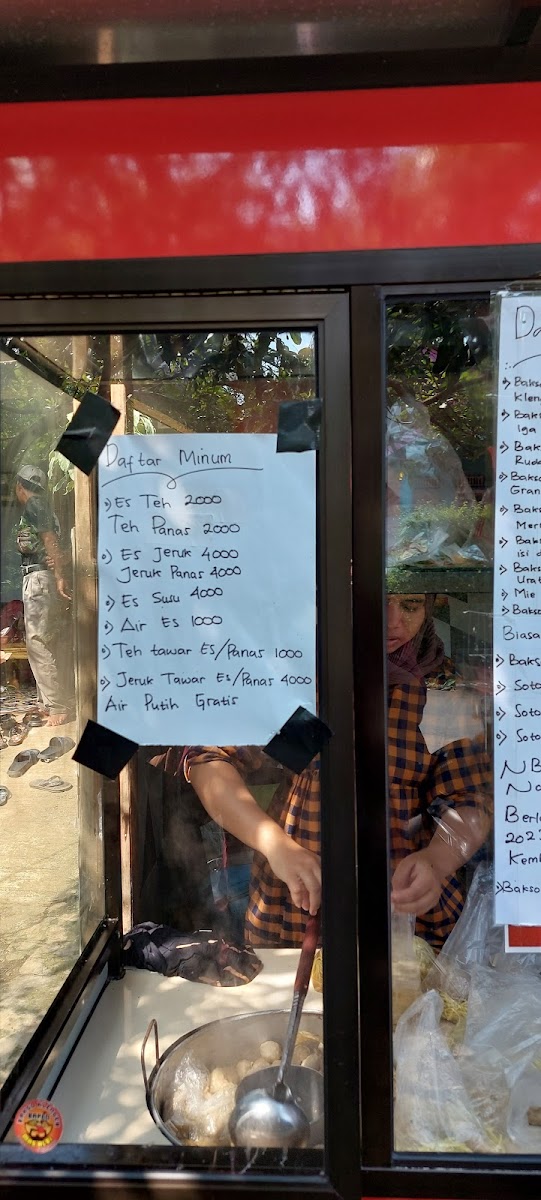 Daftar Minum
Es Teh 2000
Teh Panas 2000
Es Jeruk 4000
Jeruk Panas 4000
Es Susu 4000
Air Es 1000
Teh tawar Es/Panas 1000
Jeruk Tawar Es/Panas 4000
Air Putih Gratis
Da
Bakso
Klen
Bak
Iga
Bak
Ruda
Bakso
Gran
Baks
Mer
Bak
isi d
Baks
Urat
Mie
Bakso
Biasa
Bakso
Soto
Soto
Soto
NB
No
Berl
202
Kemb
Bakso